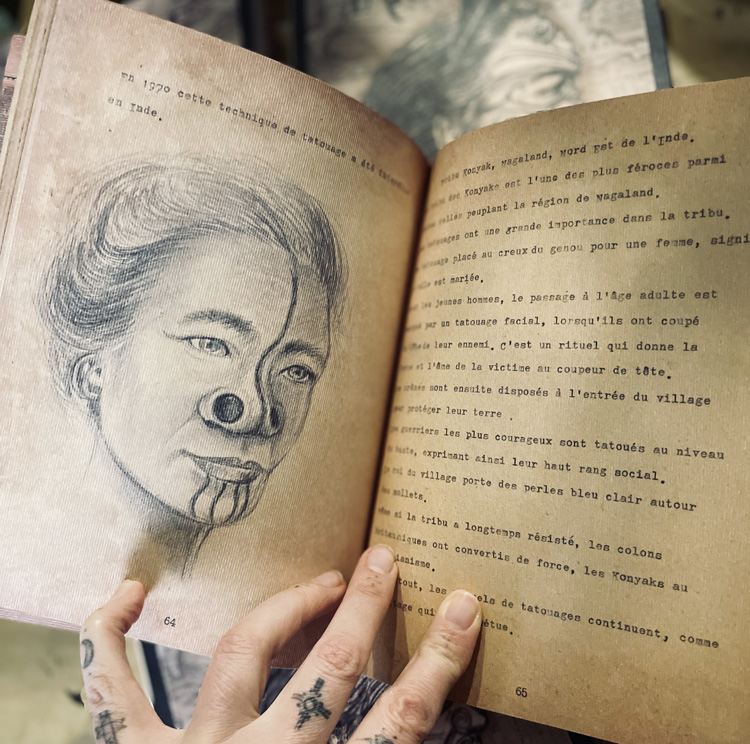 En 1970 cette technique de tatouage a été
en Inde.
64
Konyak, Nagaland, Nord Est de l'Inde.
des Konyaks est l'une des plus féroces parmi
peuplant la région de Nagaland.
ont une grande importance dans la tribu.
placé au creux du genou pour une femme,
est mariée.
jeunes hommes, le passage à l'âge adulte est
par un tatouage facial, lorsqu'ils ont coupé
de leur ennemi. C'est un rituel qui donne la
et l'âme de la victime au coupeur de tête.
sont ensuite disposés à l'entrée du village
protéger leur terre .
guerriers les plus courageux sont tatoués au niveau
exprimant ainsi leur haut rang social.
du village porte des perles bleu clair autour
mollets.
si la tribu a longtemps résisté, les colons
ont convertis de force, les Konyaks au
tout, les de tatouages continuent, comme
65